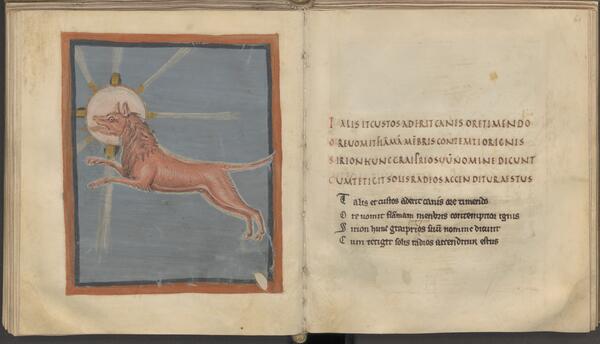 TALIS ET CUSTOS ADERIT CANIS ORE TIMENDO
OREUOMIT FLAMĀ MĒBRIS CONTEMTIOR IGNIS
SIRION HUNC GRAIPRIOS UŪ NOMINE DICUNT
CUM TETIGIT SOLIS RADIOS ACCENDITUR AESTUS
Talis et custos aderit canis ore timendo
Ore vomit flāmam menbris contemptior ignis
Sirion hunc graiprios suū nomine dicunt
Cum tetigit solis radios accenditur estus